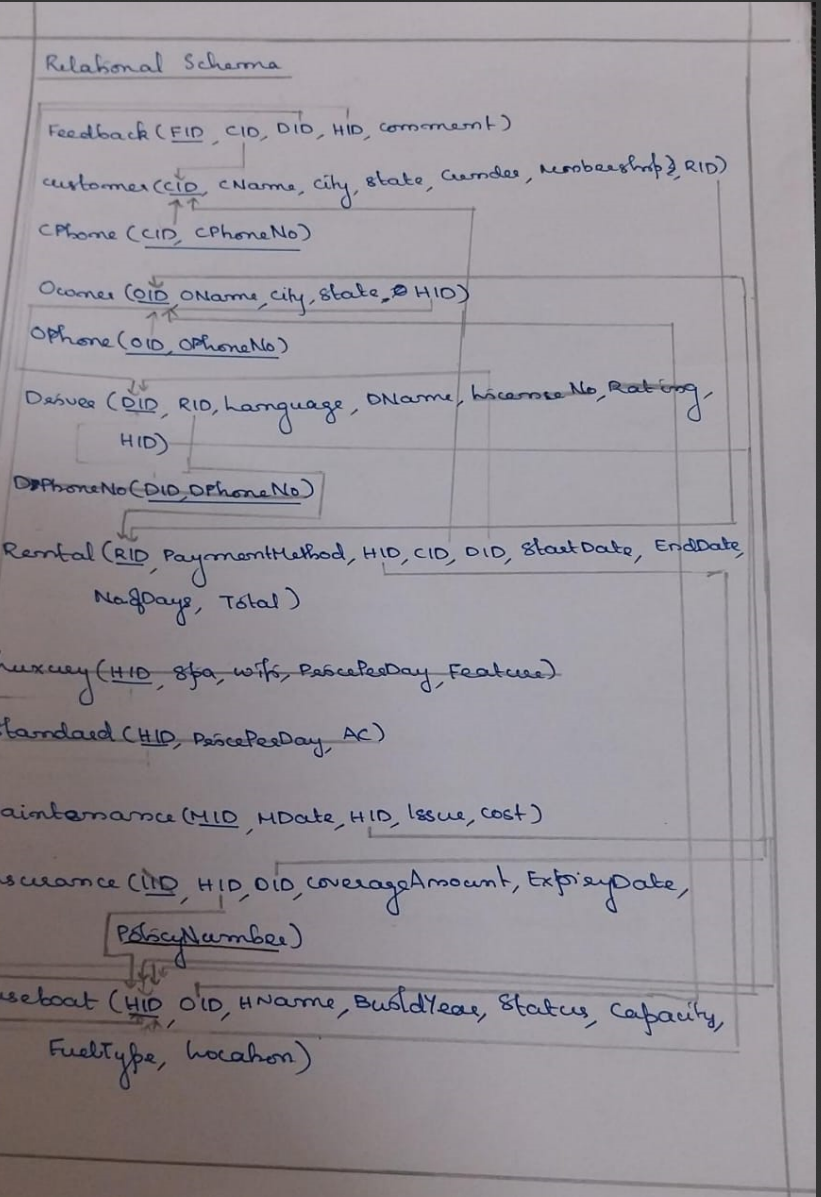 Relational Schema
Feedback (FID, CID, DID, HID, comment)
customer (CID, CName, city, state, Gender, Membership?, RID)
CPhone (CID, CPhoneNo)
Owner (OID, OName, city, state, HID)
OPhone (OID, OPhoneNo)
Driver (DID, RID, Language, DName, License No, Rating,
HID)
DPhoneNo (DID, DPhoneNo)
Rental (RID, PaymentMethod, HID, CID, DID, StartDate, EndDate,
NoofDays, Total)
uxury (HID, Spa, wifi, PricePerDay, Feature)
tandard (HID, PricePerDay, AC)
aintenance (MID, MDate, HID, Issue, Cost)
surance (IID, HID, OID, coverageAmount, ExpiryDate,
PolicyNumber)
useboat (HID, OID, HName, BuildYear, Status, Capacity,
FuelType, Location)